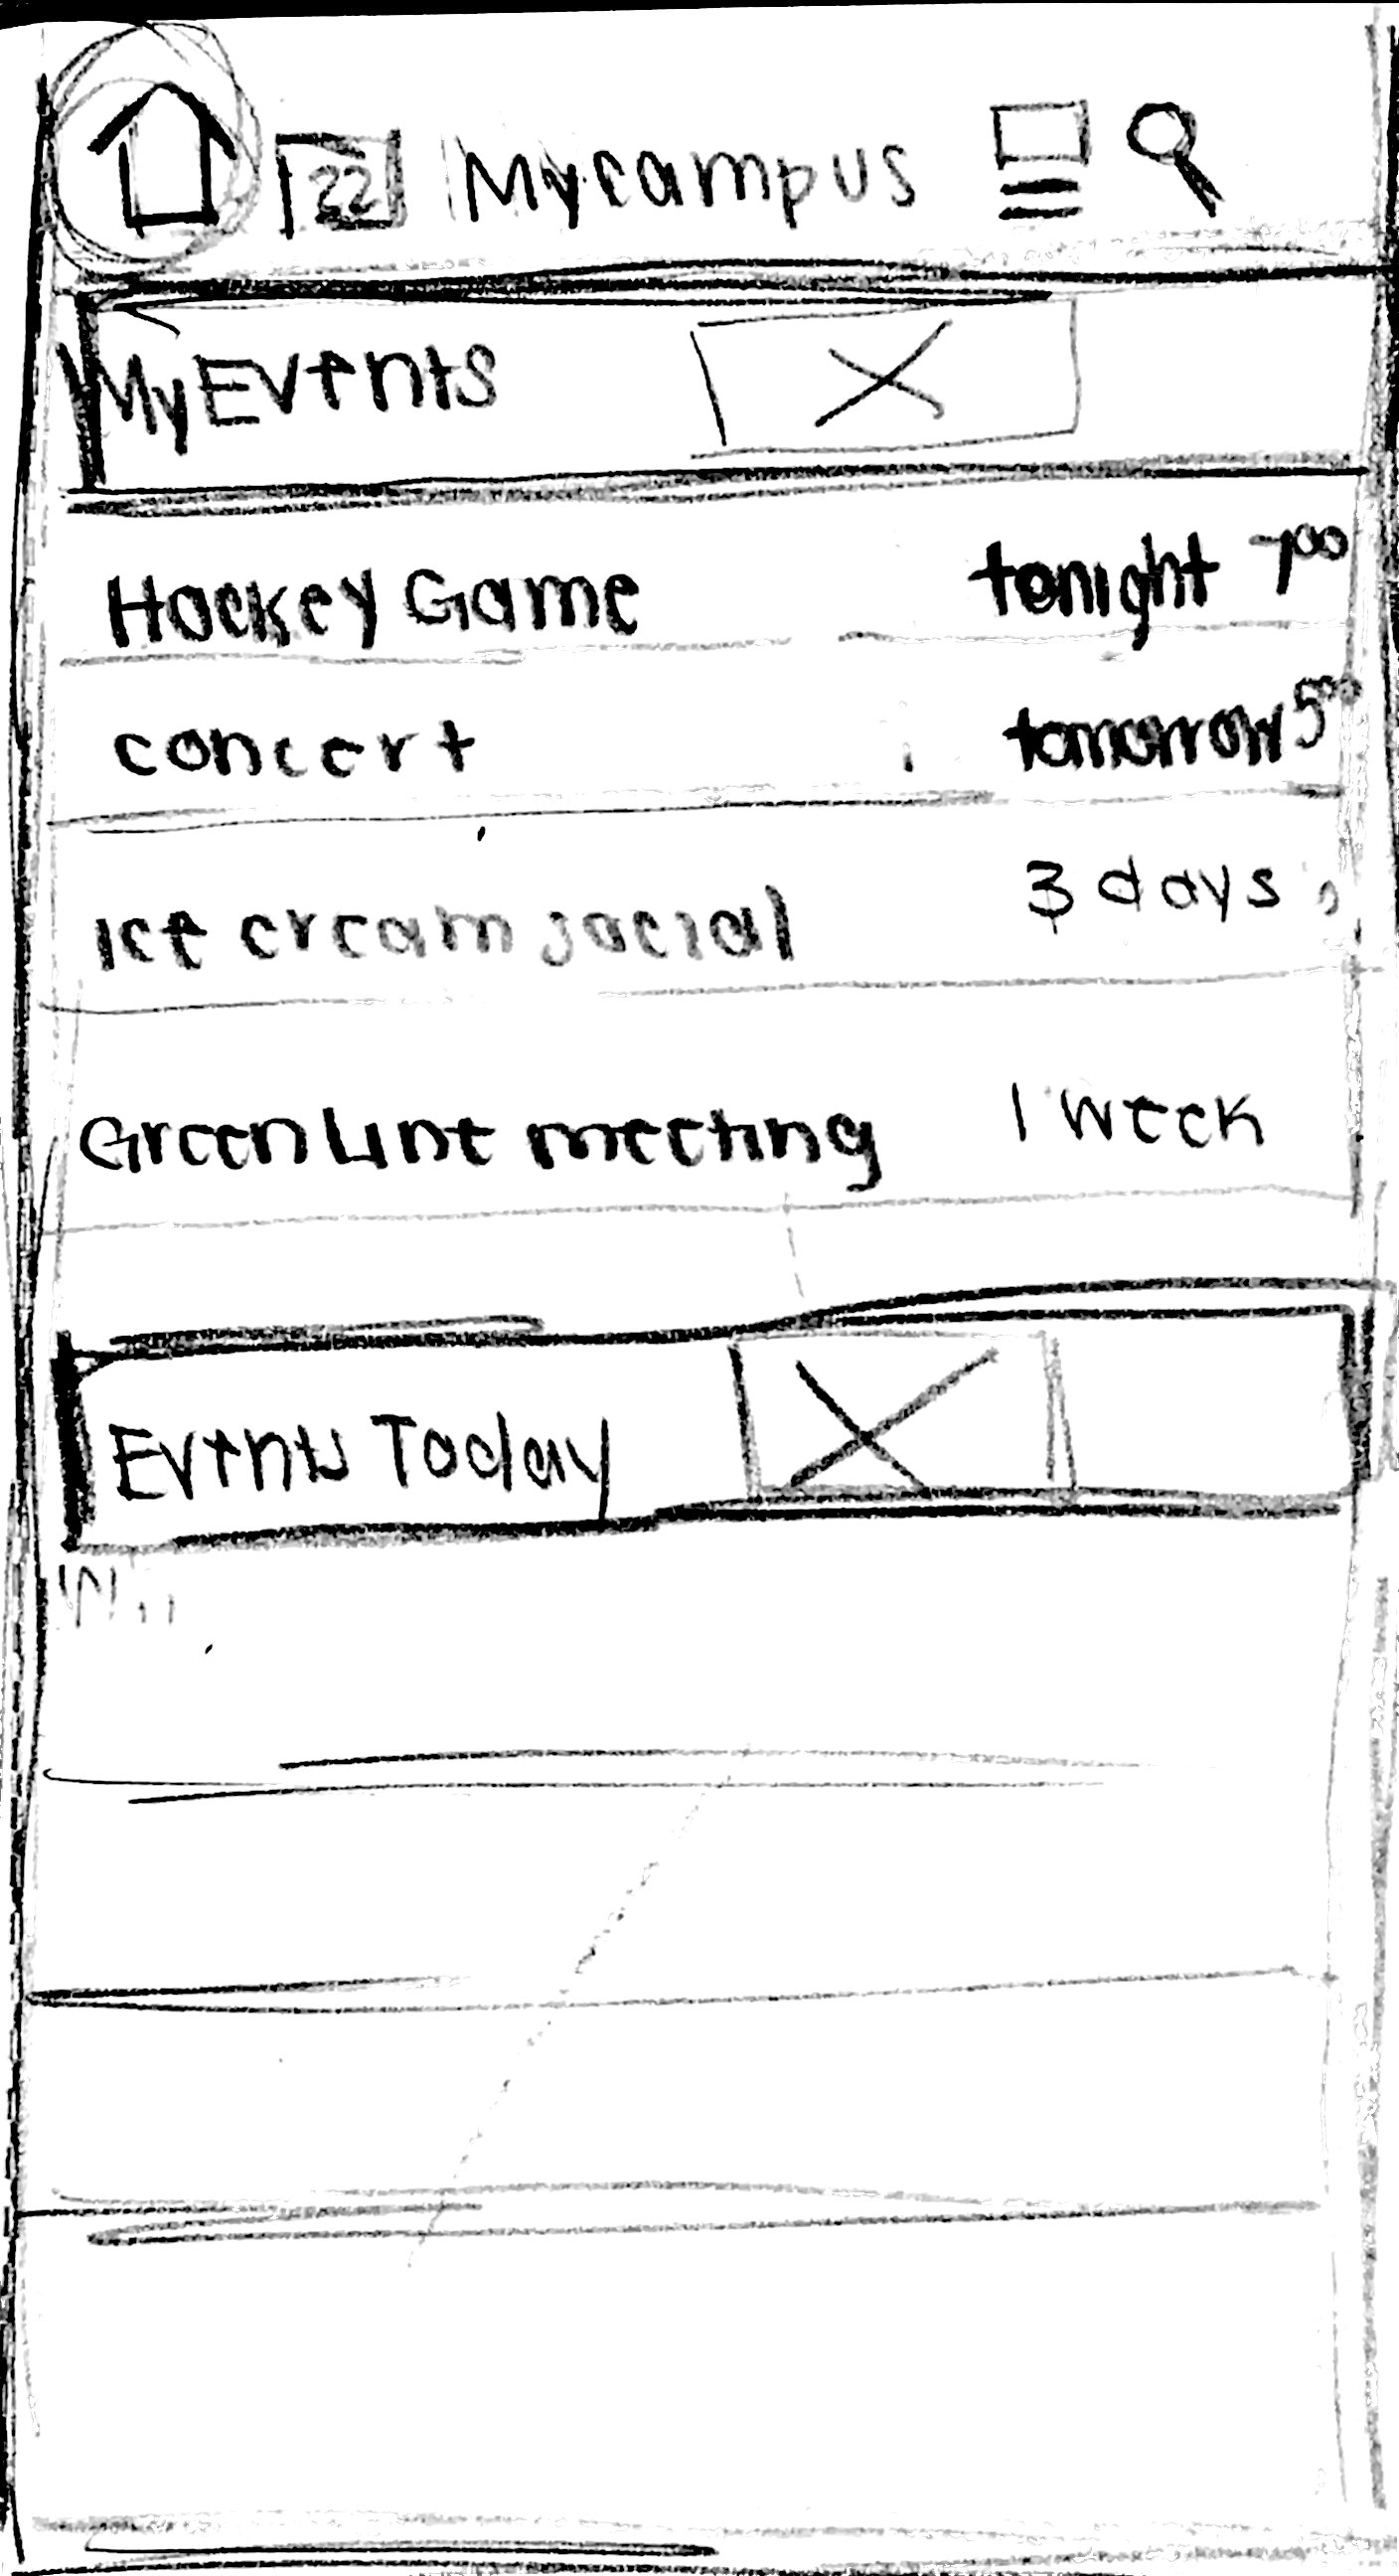 22 Mycampus
My Events
Hockey Game tonight 7:00
concert tomorrow 5:00
Ice cream social 3 days
Green Line meeting 1 week
Events Today